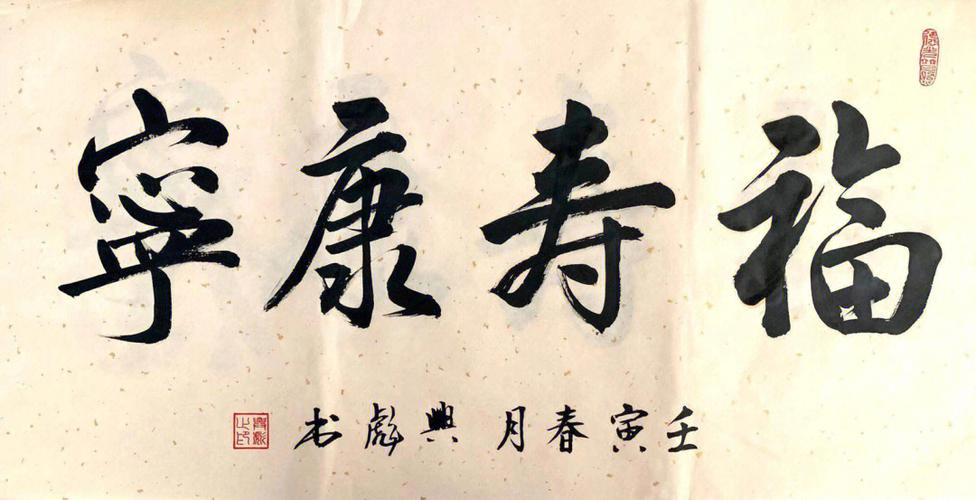 福寿康寧
壬寅春月興彪书